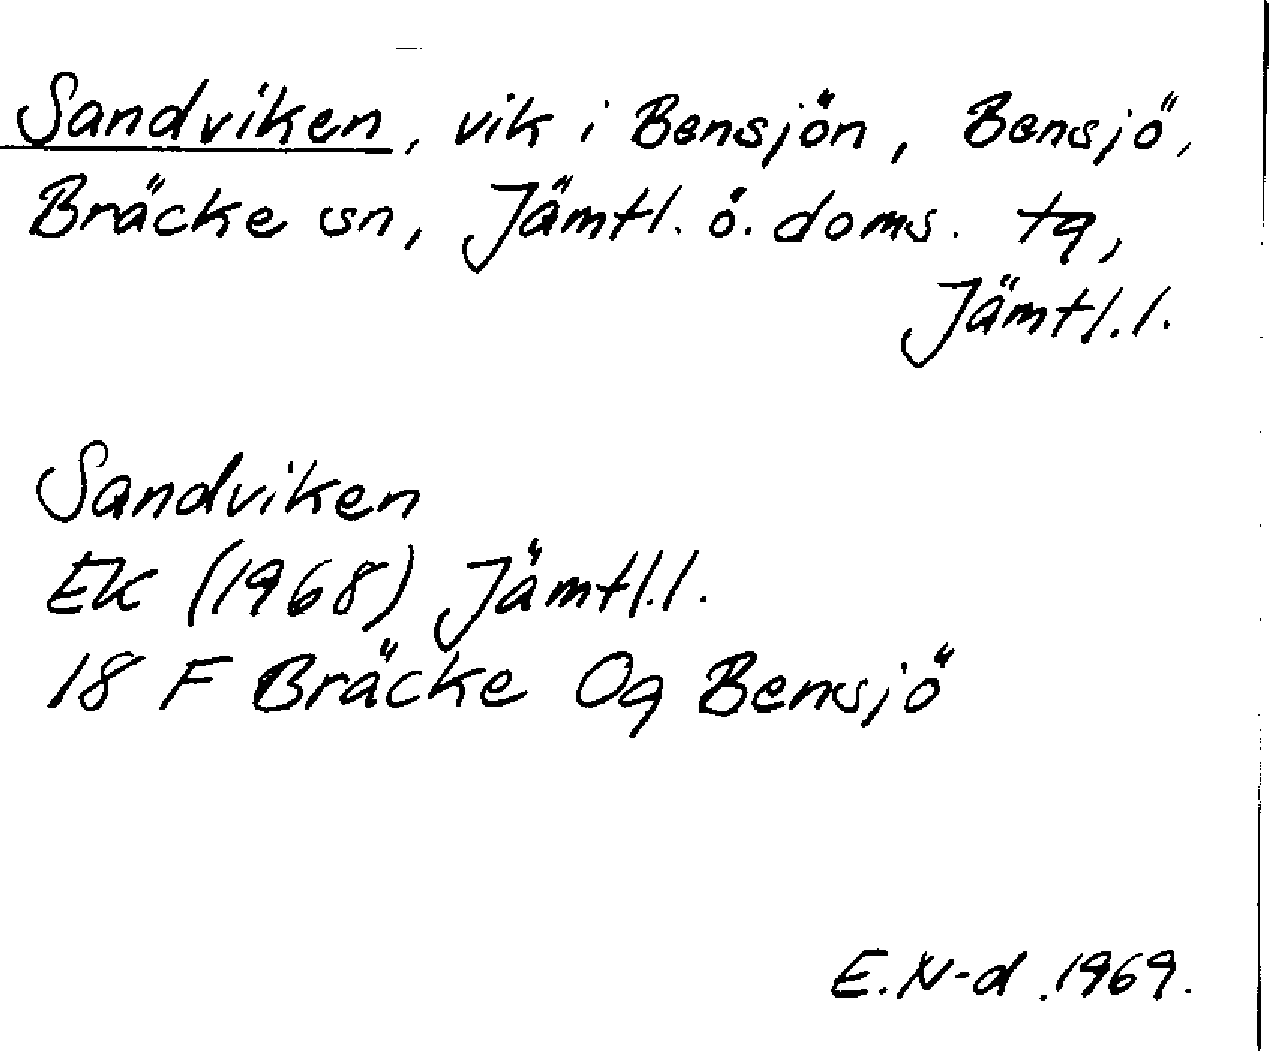 Sandviken, vik i Bensjön, Bensjö,
Bräcke sn, Jämtl. ö. doms. tg,
Jämtl.l.
Sandviken
EK (1968) Jämtl.l.
18 F Bräcke Og Bensjö
E.N-d. 1969.